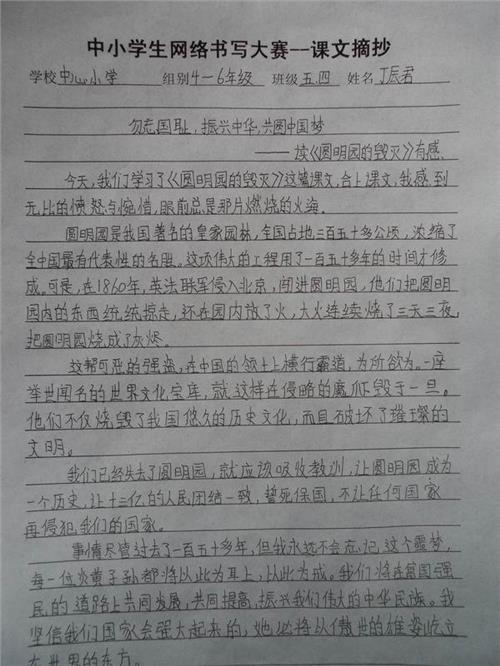 中小学生网络书写大赛--课文摘抄
学校中心小学 组别4—6年级 班级五.四 姓名丁辰君
勿忘国耻,振兴中华,共圆中国梦
——读《圆明园的毁灭》有感
今天,我们学习了《圆明园的毁灭》这篇课文,合上课文,我感到
无比的愤怒与惋惜,眼前总是那片燃烧的火海。
圆明园是我国著名的皇家园林,全国占地三百五十多公顷,浓缩了
全中国最有代表性的名胜。这项伟大的工程用了一百五十多年的时间才修
成。可是,在1860年,英法联军侵入北京,闯进圆明园,他们把圆明
园内的东西统统掠走,还在园内放了火,大火连续烧了三天三夜,
把圆明园烧成了灰烬。
这帮可恶的强盗,在中国的领土上横行霸道,为所欲为。一座
举世闻名的世界文化宝库,就这样在侵略的魔爪毁于一旦。
他们不仅烧毁了我国悠久的历史文化,而且破坏了璀璨的
文明。
我们已经失去了圆明园,就应该吸收教训,让圆明园成为
一个历史,让十三亿的人民团结一致,誓死保国,不让任何国家
再侵犯我们的国家。
事情尽管过去了一百五十多年,但我永远不会忘记这个噩梦,
每一位炎黄子孙都将以此为耻,以此为戒。我们将在富国强
民的道路上共同发展,共同提高,振兴我们伟大的中华民族。我
坚信我们国家会强大起来的,她必将以傲世的雄姿屹立
在世界的东方。